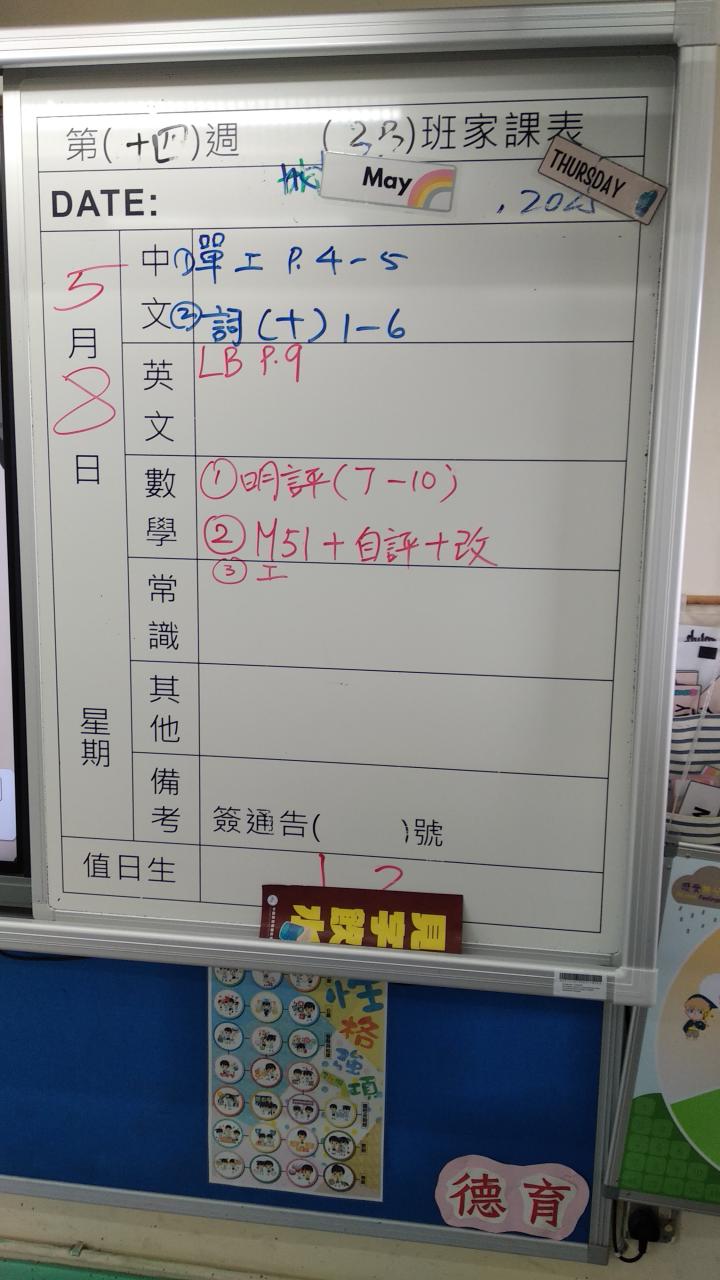 第(十四)週 (3B)班家課表
DATE: May , 2025 THURSDAY
5月8日 星期
中文 ① 單工 P. 4-5
② 詞(十) 1-6
英文 LB P.9
數學 ① 明評(7-10)
② M51+自評+改
③ 工
常識
其他
備考 簽通告( )號
值日生 1 2
見字飲水
性格強項
德育